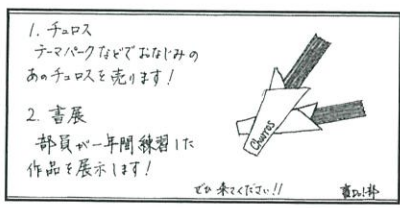 1. チュロス
テーマパークなどでおなじみの
あのチュロスを売ります！
2. 書展
部員が一年間練習した
作品を展示します！
Churros
ぜひ来てください!!
書道部